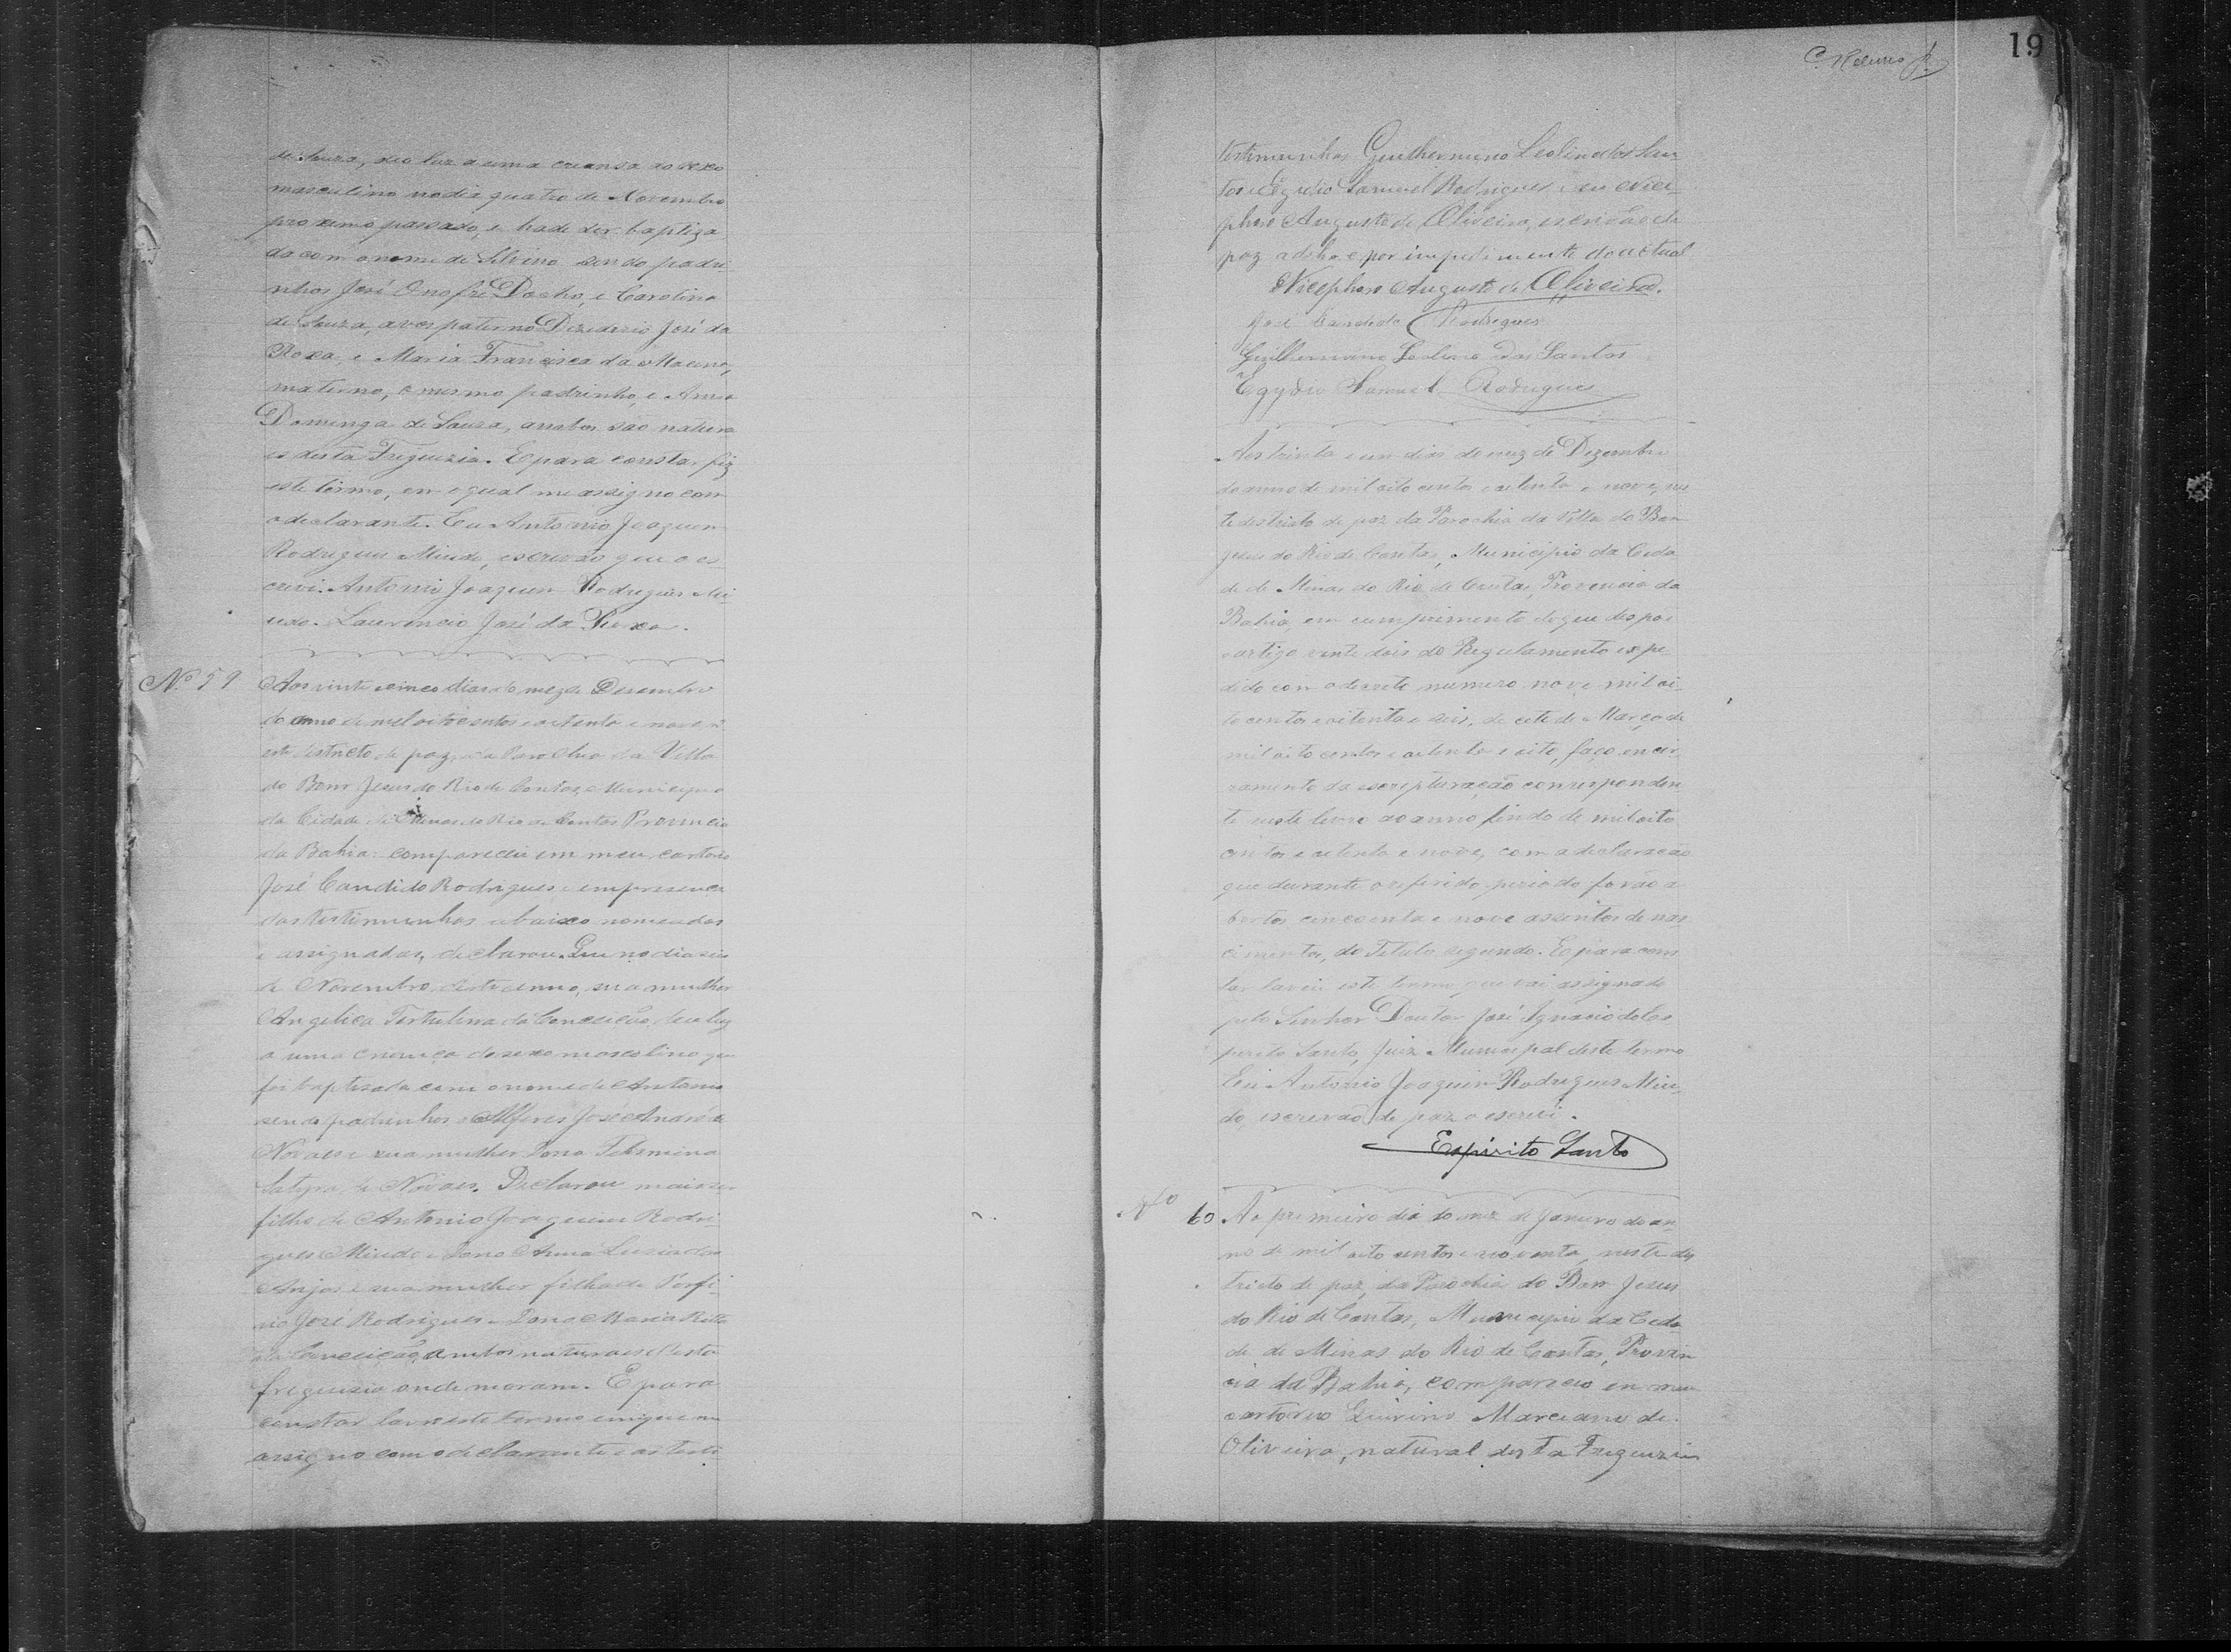 de Souza, deo luz a uma creansa do sexo
masculino no dia quatro de Novembro
proximo passado, e hade ser baptiza
do com o nome de Silvino sendo padri
nhos José Onofre Docho, e Carolina
de Souza, avos paterno Dizederio José da
Roxa, e Maria Francisca da
materno, o mesmo padrinho, e Anna
Dominga de Souza, ambos são natura
es desta Freguizia. E para constar fiz
este termo, em o qual me assigno com
o declarante. Eu Antonio Joaquim
Rodrigues Miudo, escrivão que o es
crevi. Antonio Joaquim Rodrigues Mi
udo. Laurencio José da Roxa.
Nº 59 Aos vinte e cinco dias do mez de Desembro
do anno de mil oitocentos e oitenta e nove, n
este destricto de paz, da Parochia da Villa
do Bom Jesus do Rio de Contas, Municipio
da Cidade de Minas do Rio de Contas Provincia
da Bahia: compareceu em meu cartorio
José Candido Rodrigues, e em presença
das testimunhas abaixo nomeadas
e assignadas, declarou. Que no dia seis
de Novembro deste anno, sua mulher
Angelica Tertulina da Conceição, deu a luz
a uma criança do sexo mascolino que
foi baptisada com o nome de Antonio
sendo padrinhos o Alferes José André de
Novaes e sua mulher Dona
Satyra de Novaes. Declarou mais ser
filho de Antonio Joaquim Rodri-
gues Miudo e Dona Anna Luzia dos
Anjos e sua mulher filha de Porfi-
rio José Rodrigues e Dona Maria Ritta
da Conceição, ambos naturaes desta
freguizia onde moram. E para
constar lavrei este termo em que me
assigno com o declarante e as teste
19
testimunhas Guilhermino Leolino dos San
tos e Egydio Samuel Rodrigues, e eu Nice-
phoro Augusto de Oliveira, escrivão de
paz ad hoc por impedimento do actual
Nicephoro Augusto de Oliveira.
José Candido Rodrigues
Guilhermino Leolino dos Santos
Egydio Samuel Rodrigues
Aos trinta e um dias do mez de Dezembro
do anno de mil oito centos e oitenta e nove, nes
te destricto de paz da Parochia da Villa do Bom
Jesus do Rio de Contas, Municipio da Cida
de de Minas do Rio de Contas, Provencia da
Bahia, em cumprimento do que despoe
o artigo vinte dois do Regulamento expe
dido com o decreto numero nove mil oi
to centos e oitenta e seis, de cete de Março de
mil oito centos e oitenta e oito, faço encer
ramento da escripturação correspenden
te neste livro ao anno findo de mil oito
centos e oitenta e nove, com a declaração
que durante o referido periodo forão a
bertos cincoenta e nove assentos de nas
cimentos, do Titulo segundo. E para cons
tar lavrei este termo, que vai assignado
pelo Senhor Doutor José Ignacio do Es
pirito Santo, Juiz Municipal deste termo
Eu Antonio Joaquim Rodrigues Miu
do, escrevão de paz o escrevi.
Espirito Santo
Nº 60 Ao primeiro dia do mez de Janeiro do an
no de mil oito centos e noventa, neste des
tricto de paz, da Parochia do Bom Jesus
do Rio de Contas, Municipio da Cida
de de Minas do Rio de Contas, Provin
cia da Bahia, compareceo em meu
cartorio Quirino Marciano de
Oliveira, natural desta Freguizia